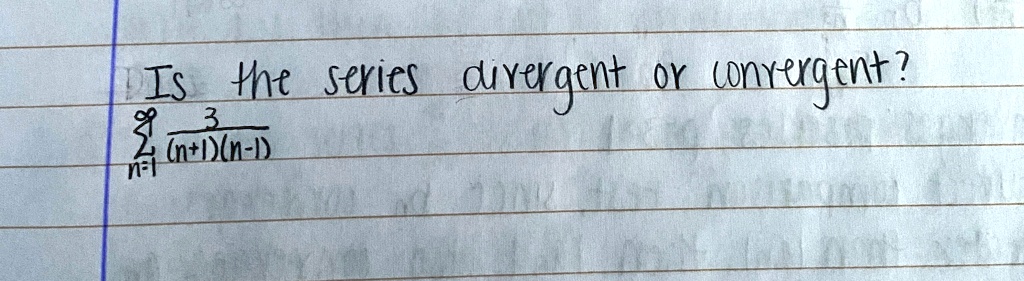 Is the series divergent or convergent?
∞ 3
Σ (n+1)(n-1)
n=1